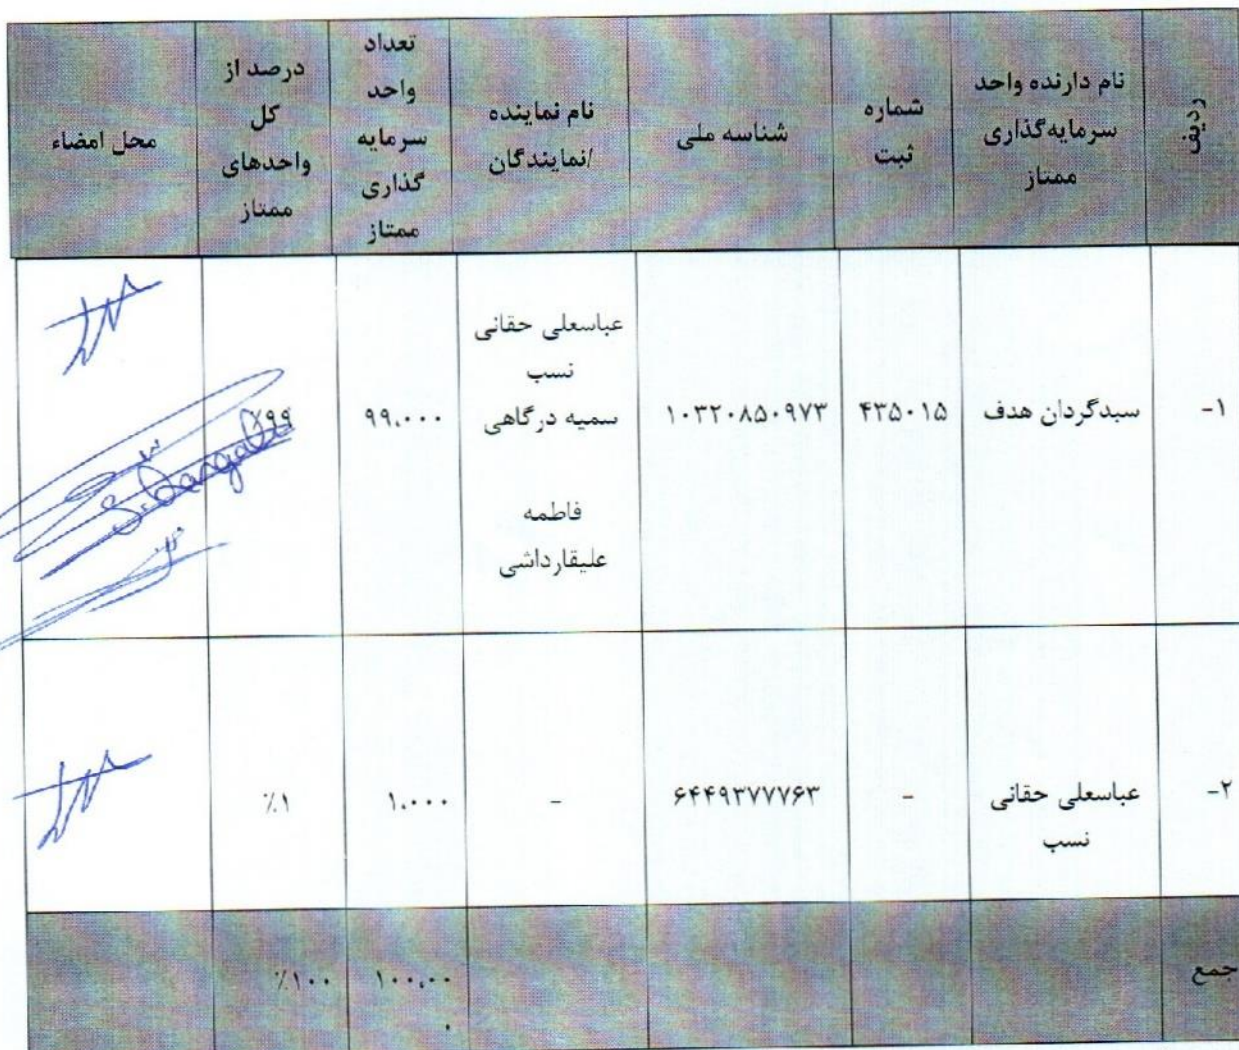 ردیف
نام دارنده واحد
سرمایه‌گذاری
ممتاز
شماره
ثبت
شناسه ملی
نام نماینده
/نمایندگان
تعداد
واحد
سرمایه
گذاری
ممتاز
درصد از
کل
واحدهای
ممتاز
محل امضاء
-۱
سبدگردان هدف
۴۳۵۰۱۵
۱۰۳۲۰۸۵۰۹۷۳
عباسعلی حقانی
نسب
سمیه درگاهی
فاطمه
علیقارداشی
۹۹,۰۰۰
٪۹۹
S.Dargahi
-۲
عباسعلی حقانی
نسب
-
۶۴۴۹۳۷۷۷۶۳
-
۱,۰۰۰
٪۱
جمع
۱۰۰,۰۰
۰
٪۱۰۰